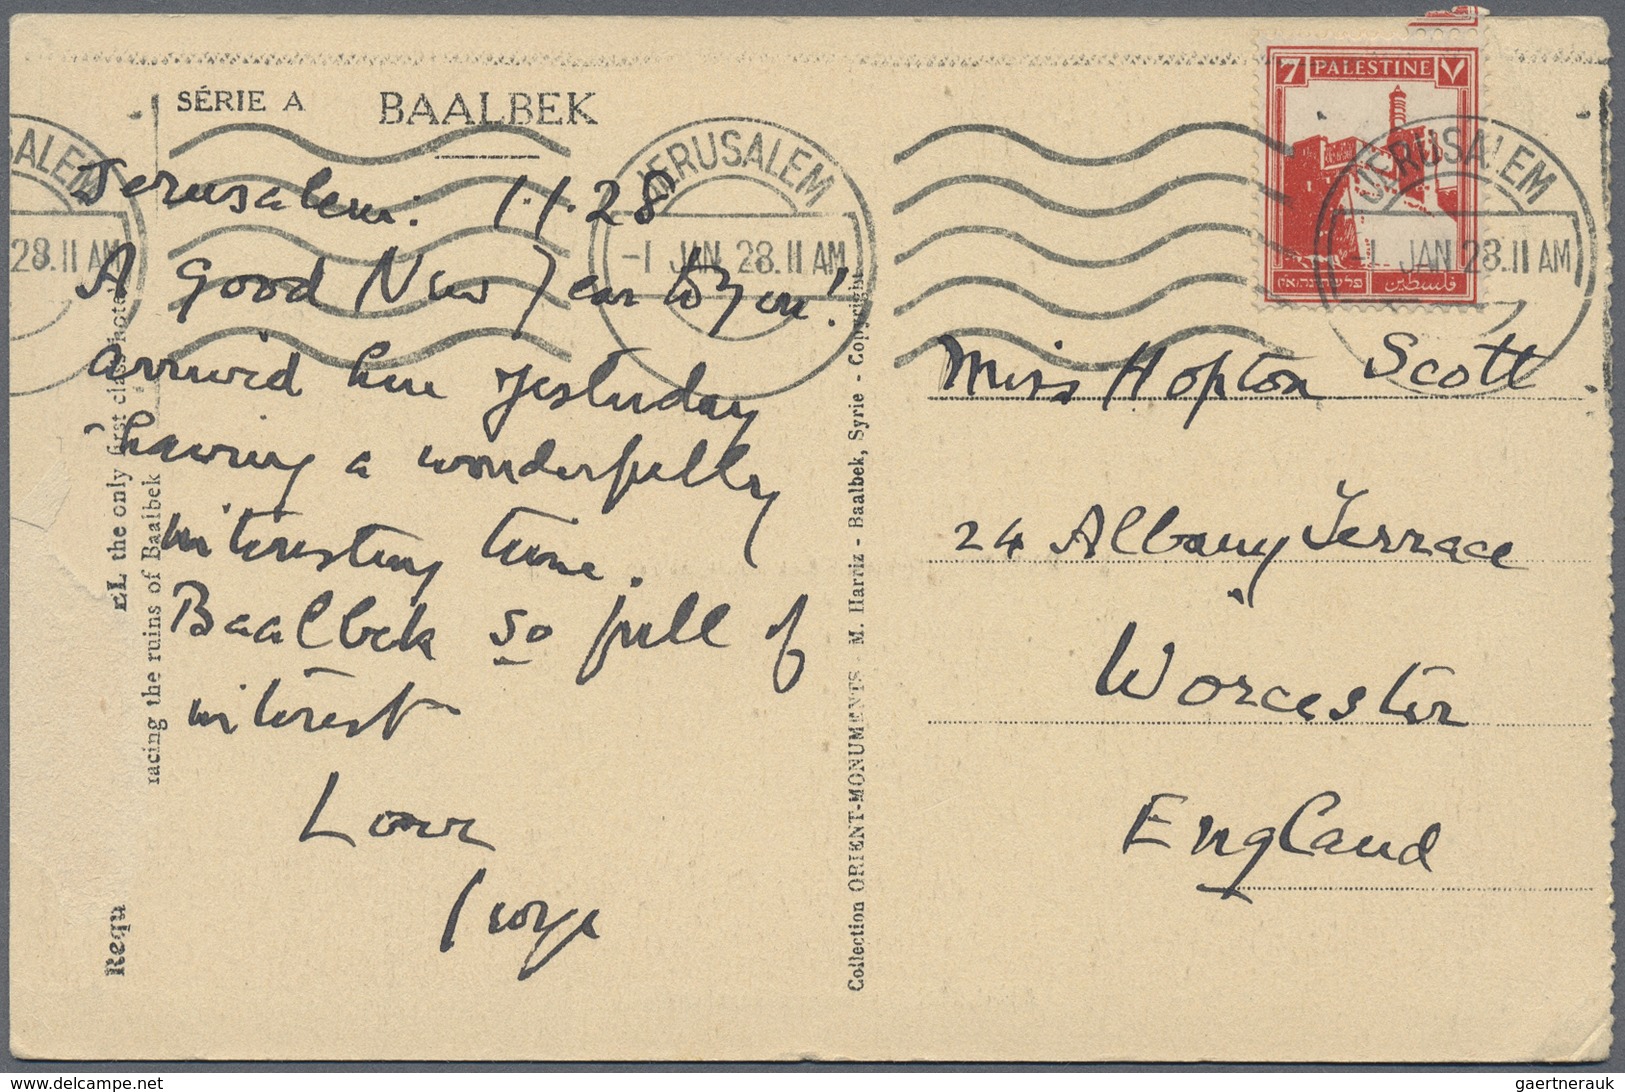 SÉRIE A BAALBEK
Jerusalem. 1.1.28
A Good New Year to you!
arrived here yesterday
having a wonderfully
interesting time.
Baalbek so full of
interest
Love
EL the only first class
facing the ruins of Baalbek
Requ
Collection ORIENT-MONUMENTS - M. Harriz - Baalbek, Syrie - Copyright
SALEM
28.11 AM
JERUSALEM
-1 JAN 28.11 AM
7 PALESTINE ٧
فلسطين
JERUSALEM
-1 JAN 28.11 AM
Miss Hopton Scott.
24 Albany Terrace
Worcester
England
gaertnerauk